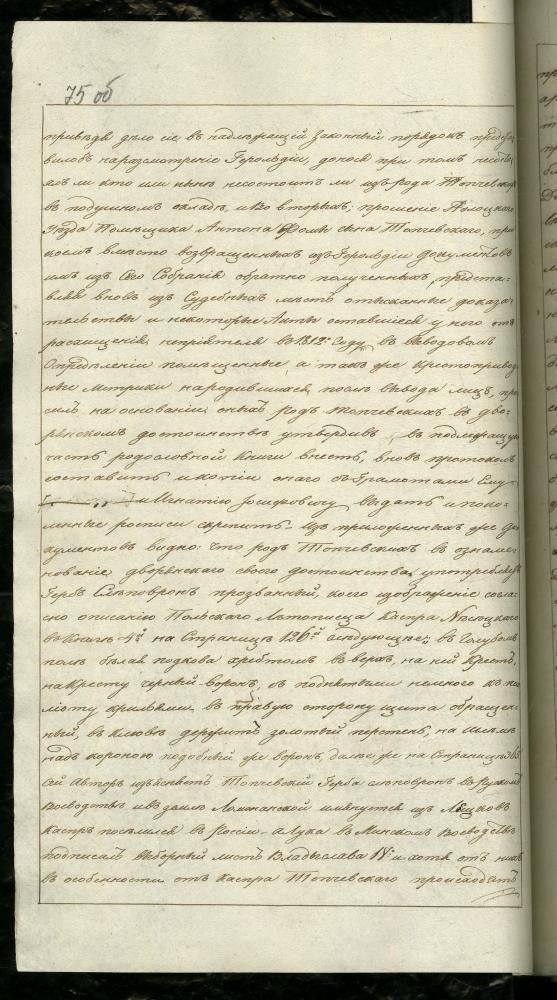 75 об
приведя дело сіе въ надлежащей Законный порядокъ предста
вилобъ на разсмотреніе Герольдіи, донося при томъ небы
лъ ли кто или ныне несостоитъ ли изъ рода Топчевскихъ
въ подушномъ окладе, и во вторыхъ: прошеніе Полоцкаго
Уезда Помещика Антона Фомы сына Топчевскаго, при
коемъ вместо возвращенныхъ изъ Герольдіи документовъ
имъ изъ Сего Собранія обратно полученныхъ, предста-
вляя вновь изъ Судебныхъ местъ отысканные доказа
тельствы и некоторые Акты оставшіеся у него отъ
расхищенія непріятеля въ 1812м Году, въ выводовомъ
Определеніи помещенные, а такъ же крестоприво
ные метрики народившихся после вывода лицъ, про
силъ на основаніи оныхъ Родъ Топчевскихъ въ дво-
рянскомъ достоинстве утвердивъ, въ подлежащую
часть родословной Книги внесть, вновь протоколъ
составить и копіи онаго съ Грамотами Ему
и Игнатію Іосифовичу выдать и поко-
ленные росписи скрепить. Изъ приложенныхъ же до
кументовъ видно: что родъ Топчевскихъ въ ознаме-
нованіе дворянскаго своего достоинства употребляетъ
Гербъ Слеповронъ прозванный, коего изображеніе согла-
сно описанію Польскаго Летописца Каспра Несецкаго
въ Книге 4й на Странице 126й следующее: въ Голубомъ
поле белая подкова хребтомъ въ верхъ, на ней Крестъ,
на Кресту черный воронъ, съ поднятыми немного къ по
лету крыльями въ правую сторону щита обращен-
ный, въ клюве держитъ золотый перстень, на шлеме
надъ короною подобный же воронъ, далее же на Странице 365
сей Авторъ изъясняетъ Топчевскій Герба слеповронъ въ Рускомъ
Воеводстве и въ земле Ломжанской именуется изъ Лецковъ
Каспръ поселился въ Россіи а Лука въ Минскомъ Воеводстве
подписалъ выборный листъ Владыслава IV и хотя отъ нихъ
въ особенности отъ Каспра Топчевскаго происходятъ